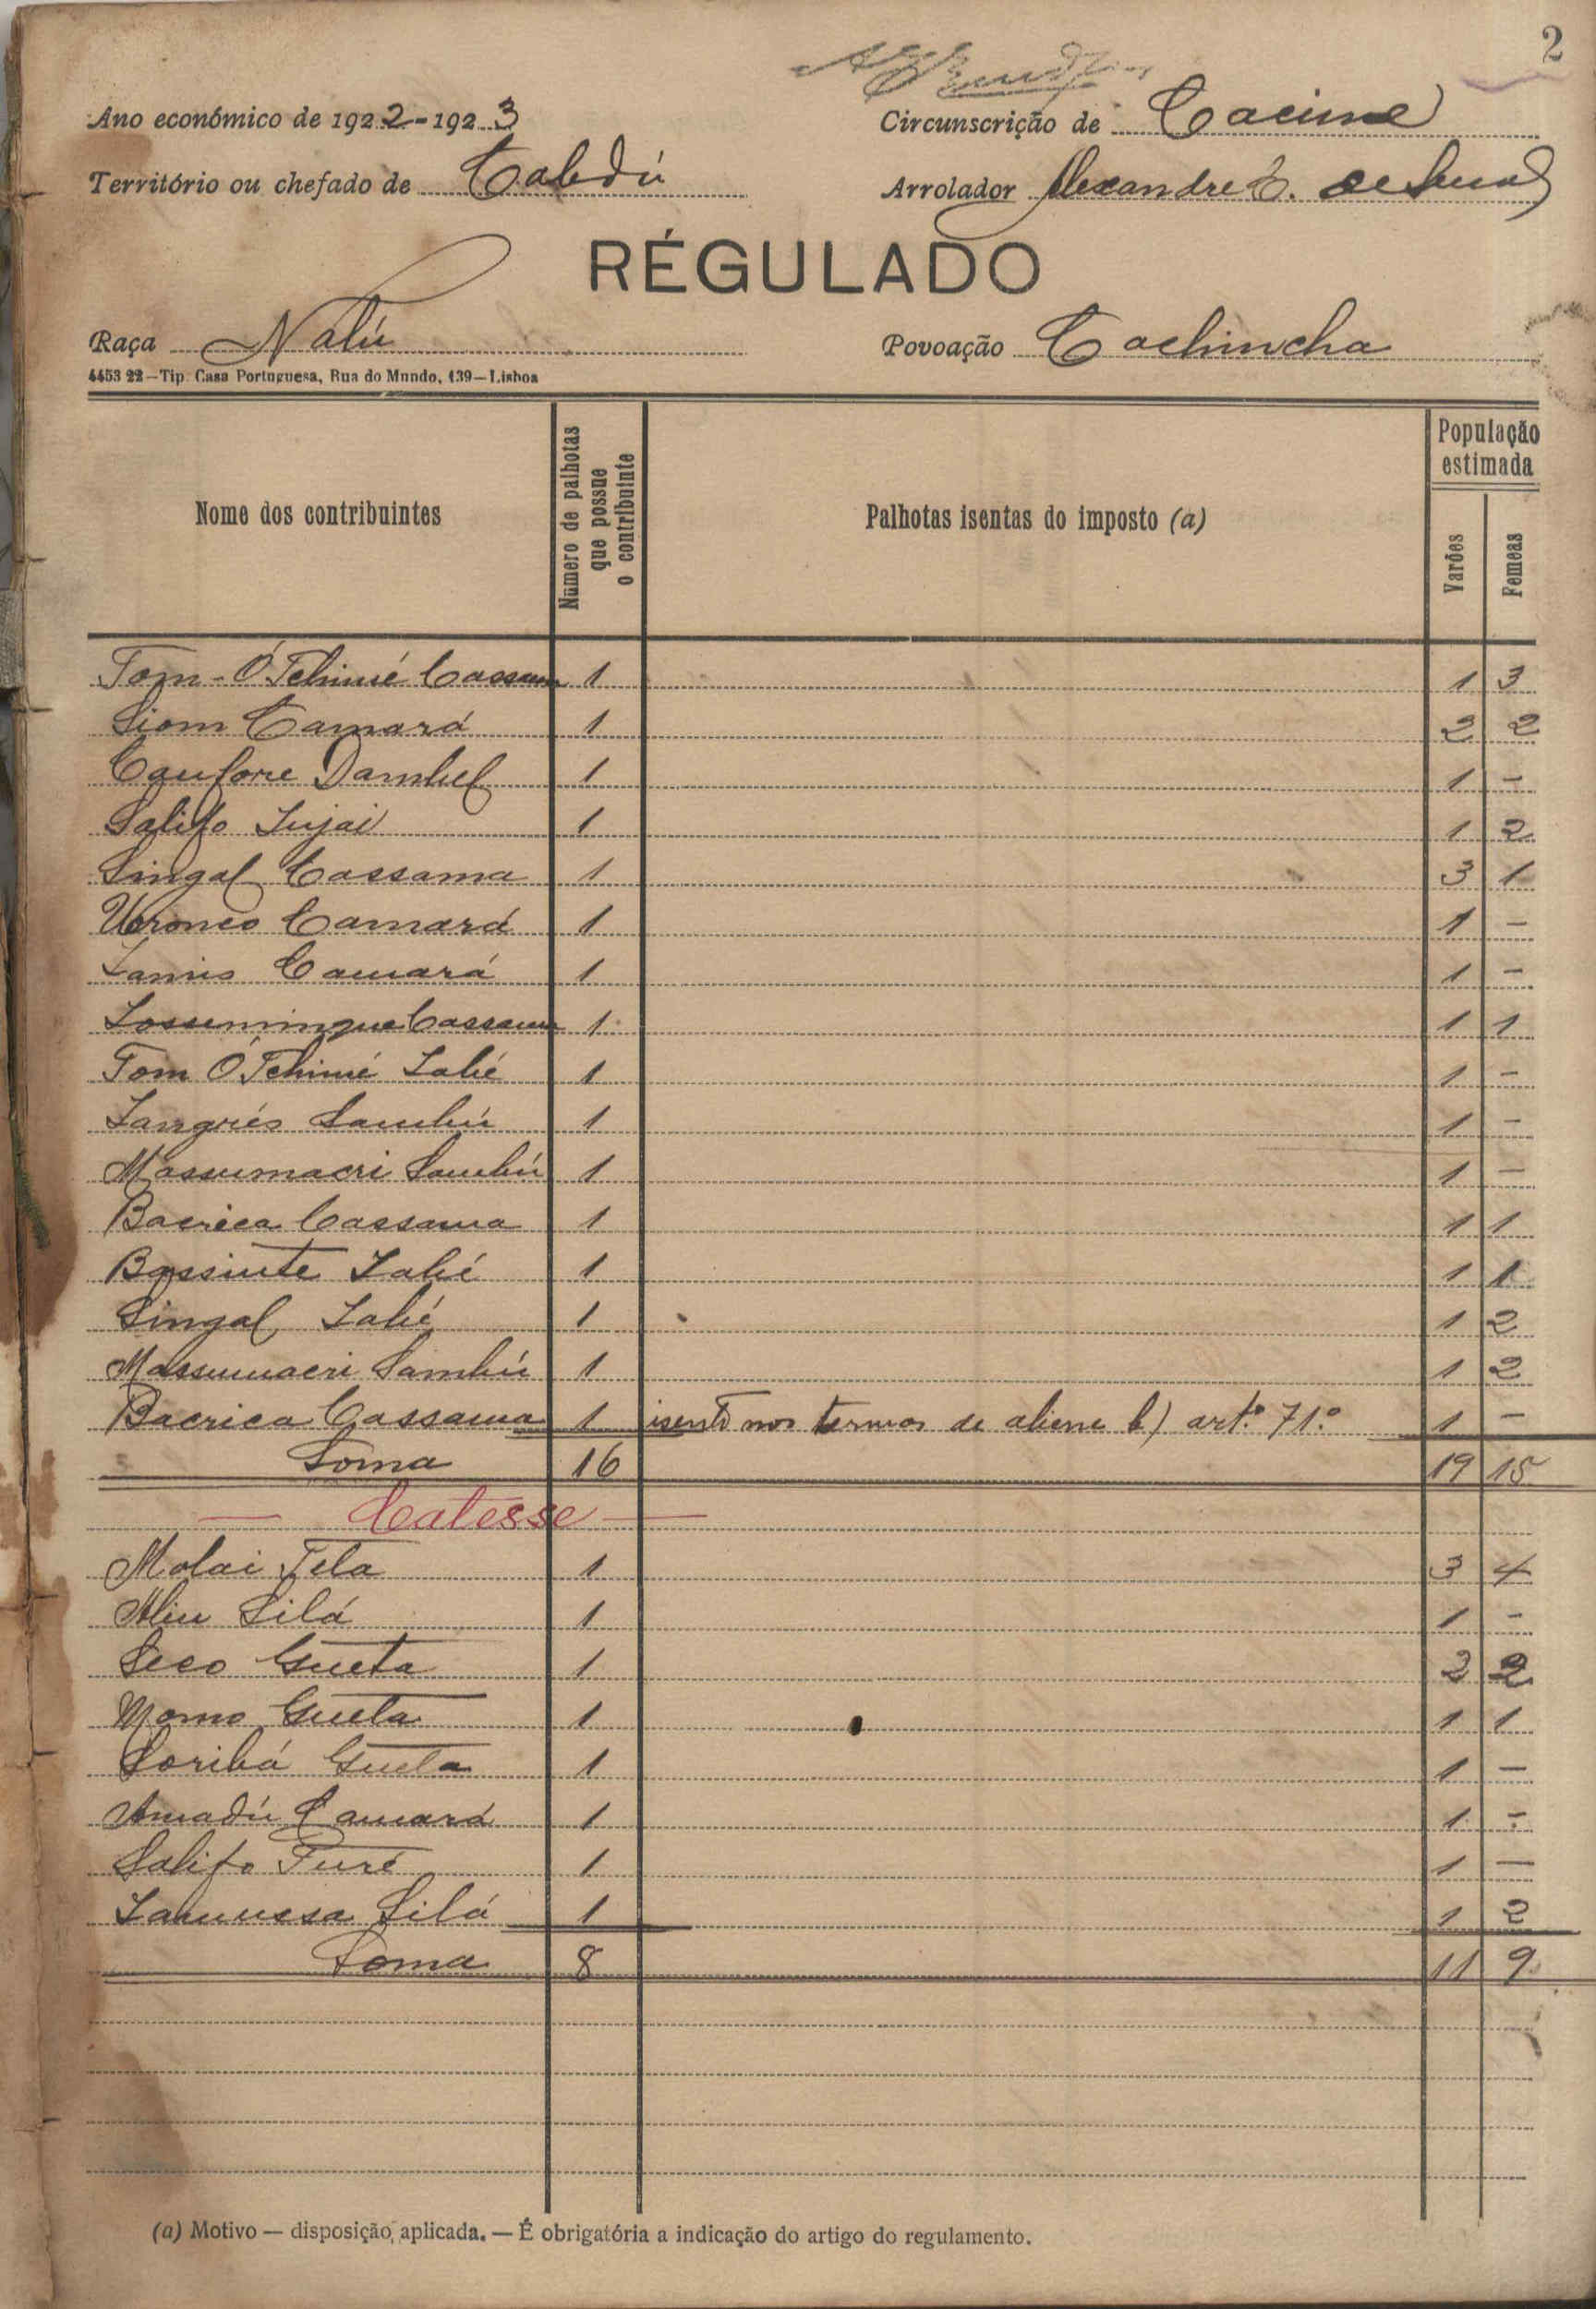 2
Ano económico de 1922-1923
Circunscrição de Cacine
Território ou chefado de Cabedú
Arrolador Alexandre C. de Sena
RÉGULADO
Raça Nalú
Povoação Cachincha
4453 22—Tip. Casa Portuguesa, Rua do Mundo, 139—Lisboa
Nome dos contribuintes
Número de palhotas que possue o contribuinte
Palhotas isentas do imposto (a)
População estimada
Varões
Femeas
Tom-Ó Tchimé Cassama 1 1 3
Siom Camará 1 2 2
Dambel 1 1 -
Salifo Injai 1 1 2
Singal Cassama 1 3 1
Camará 1 1 -
Lamis Camará 1 1 -
Cassama 1 1 1
Tom Ó Tchimé Labé 1 1 -
Sambú 1 1 -
Massumacri Sambú 1 1 -
Bacrica Cassama 1 1 1
Bassinte Labé 1 1 1
Singal Labé 1 1 2
Massumacri Sambú 1 1 2
Bacrica Cassama 1 isento nos termos de aliena b) artº 71º 1 -
Soma 16 19 15
— Catesse —
Molai Tela 1 3 4
Aliu Silá 1 1 -
Seco Gueta 1 2 2
Momo Gueta 1 1 1
Soribá Gueta 1 1 -
Amadú Camará 1 1 -
Salifo Turé 1 1 -
Silá 1 1 2
Soma 8 11 9
(a) Motivo — disposição aplicada. — É obrigatória a indicação do artigo do regulamento.